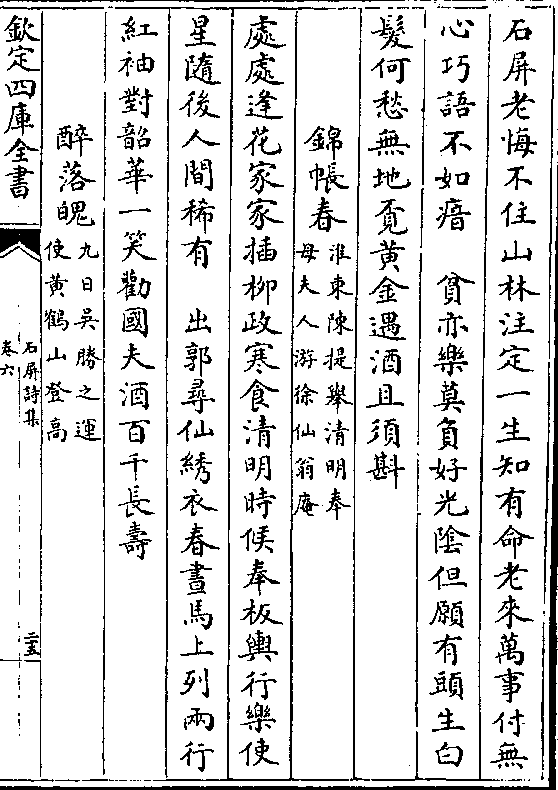 石屏老悔不住山林注定一生知有命老來萬事付無
心巧語不如瘖　貧亦樂莫負好光陰但願有頭生白
髮何愁無地覔黄金遇酒且須斟
錦帳春
淮東陳提舉清明奉
母夫人游徐仙翁庵
處處逢花家家插柳政寒食清明時候奉板輿行樂使
星隨後人間稀有　出郭尋仙綉衣春晝馬上列兩行
紅袖對韶華一笑勸國夫酒百千長壽
醉落魄
九日吳勝之運
使黄鶴山登高
欽定四庫全書
石屏詩集
卷六
二五